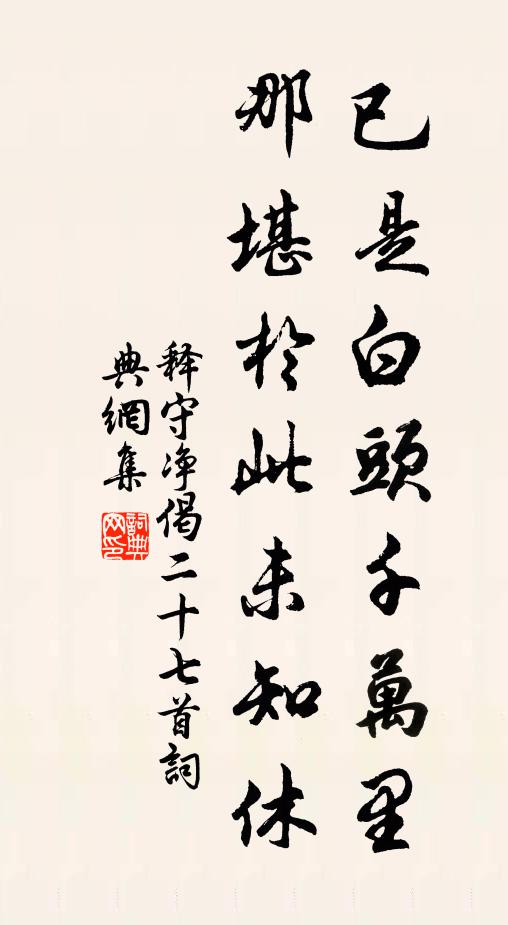 已是白頭千萬里
那堪於此未知休
释守净偈二十七首詞
典網集
詞典网印